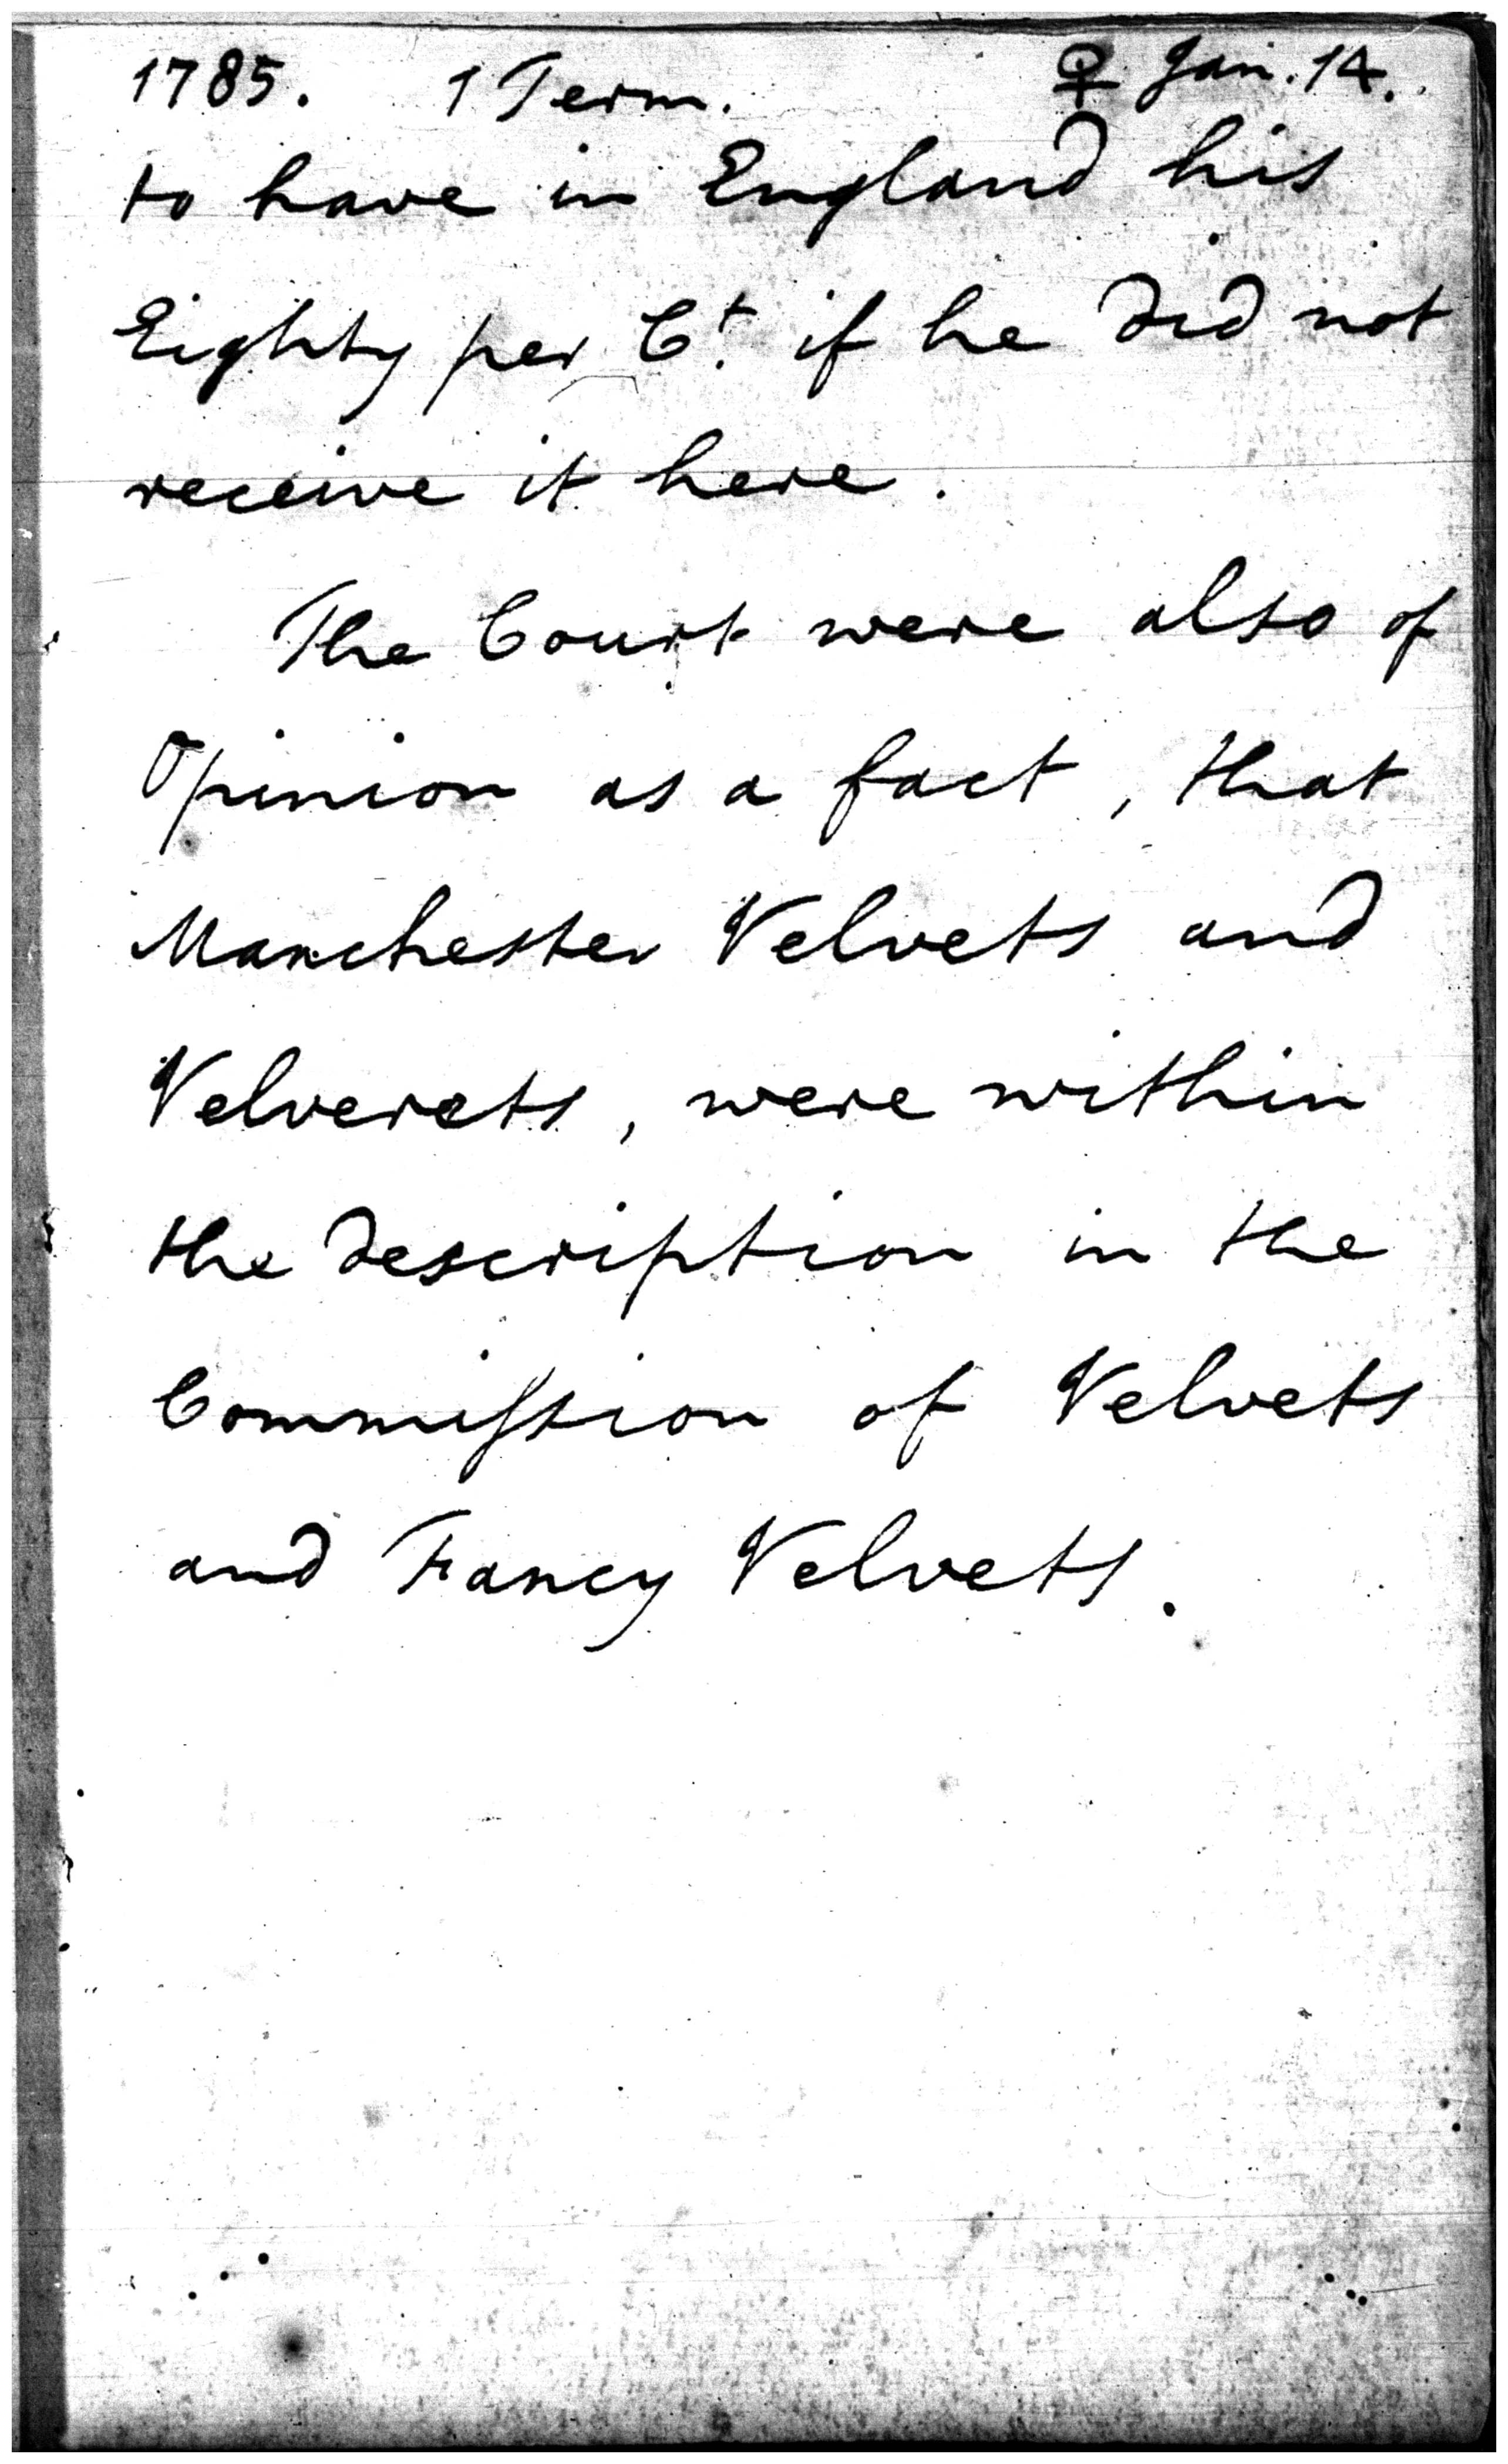 1785. 1 Term. ♀ Jan. 14.
to have in England his
Eighty per Ct. if he did not
receive it here.
The Court were also of
Opinion as a fact, that
Manchester Velvets and
Velverets, were within
the description in the
Commiſsion of Velvets
and Fancy Velvets.